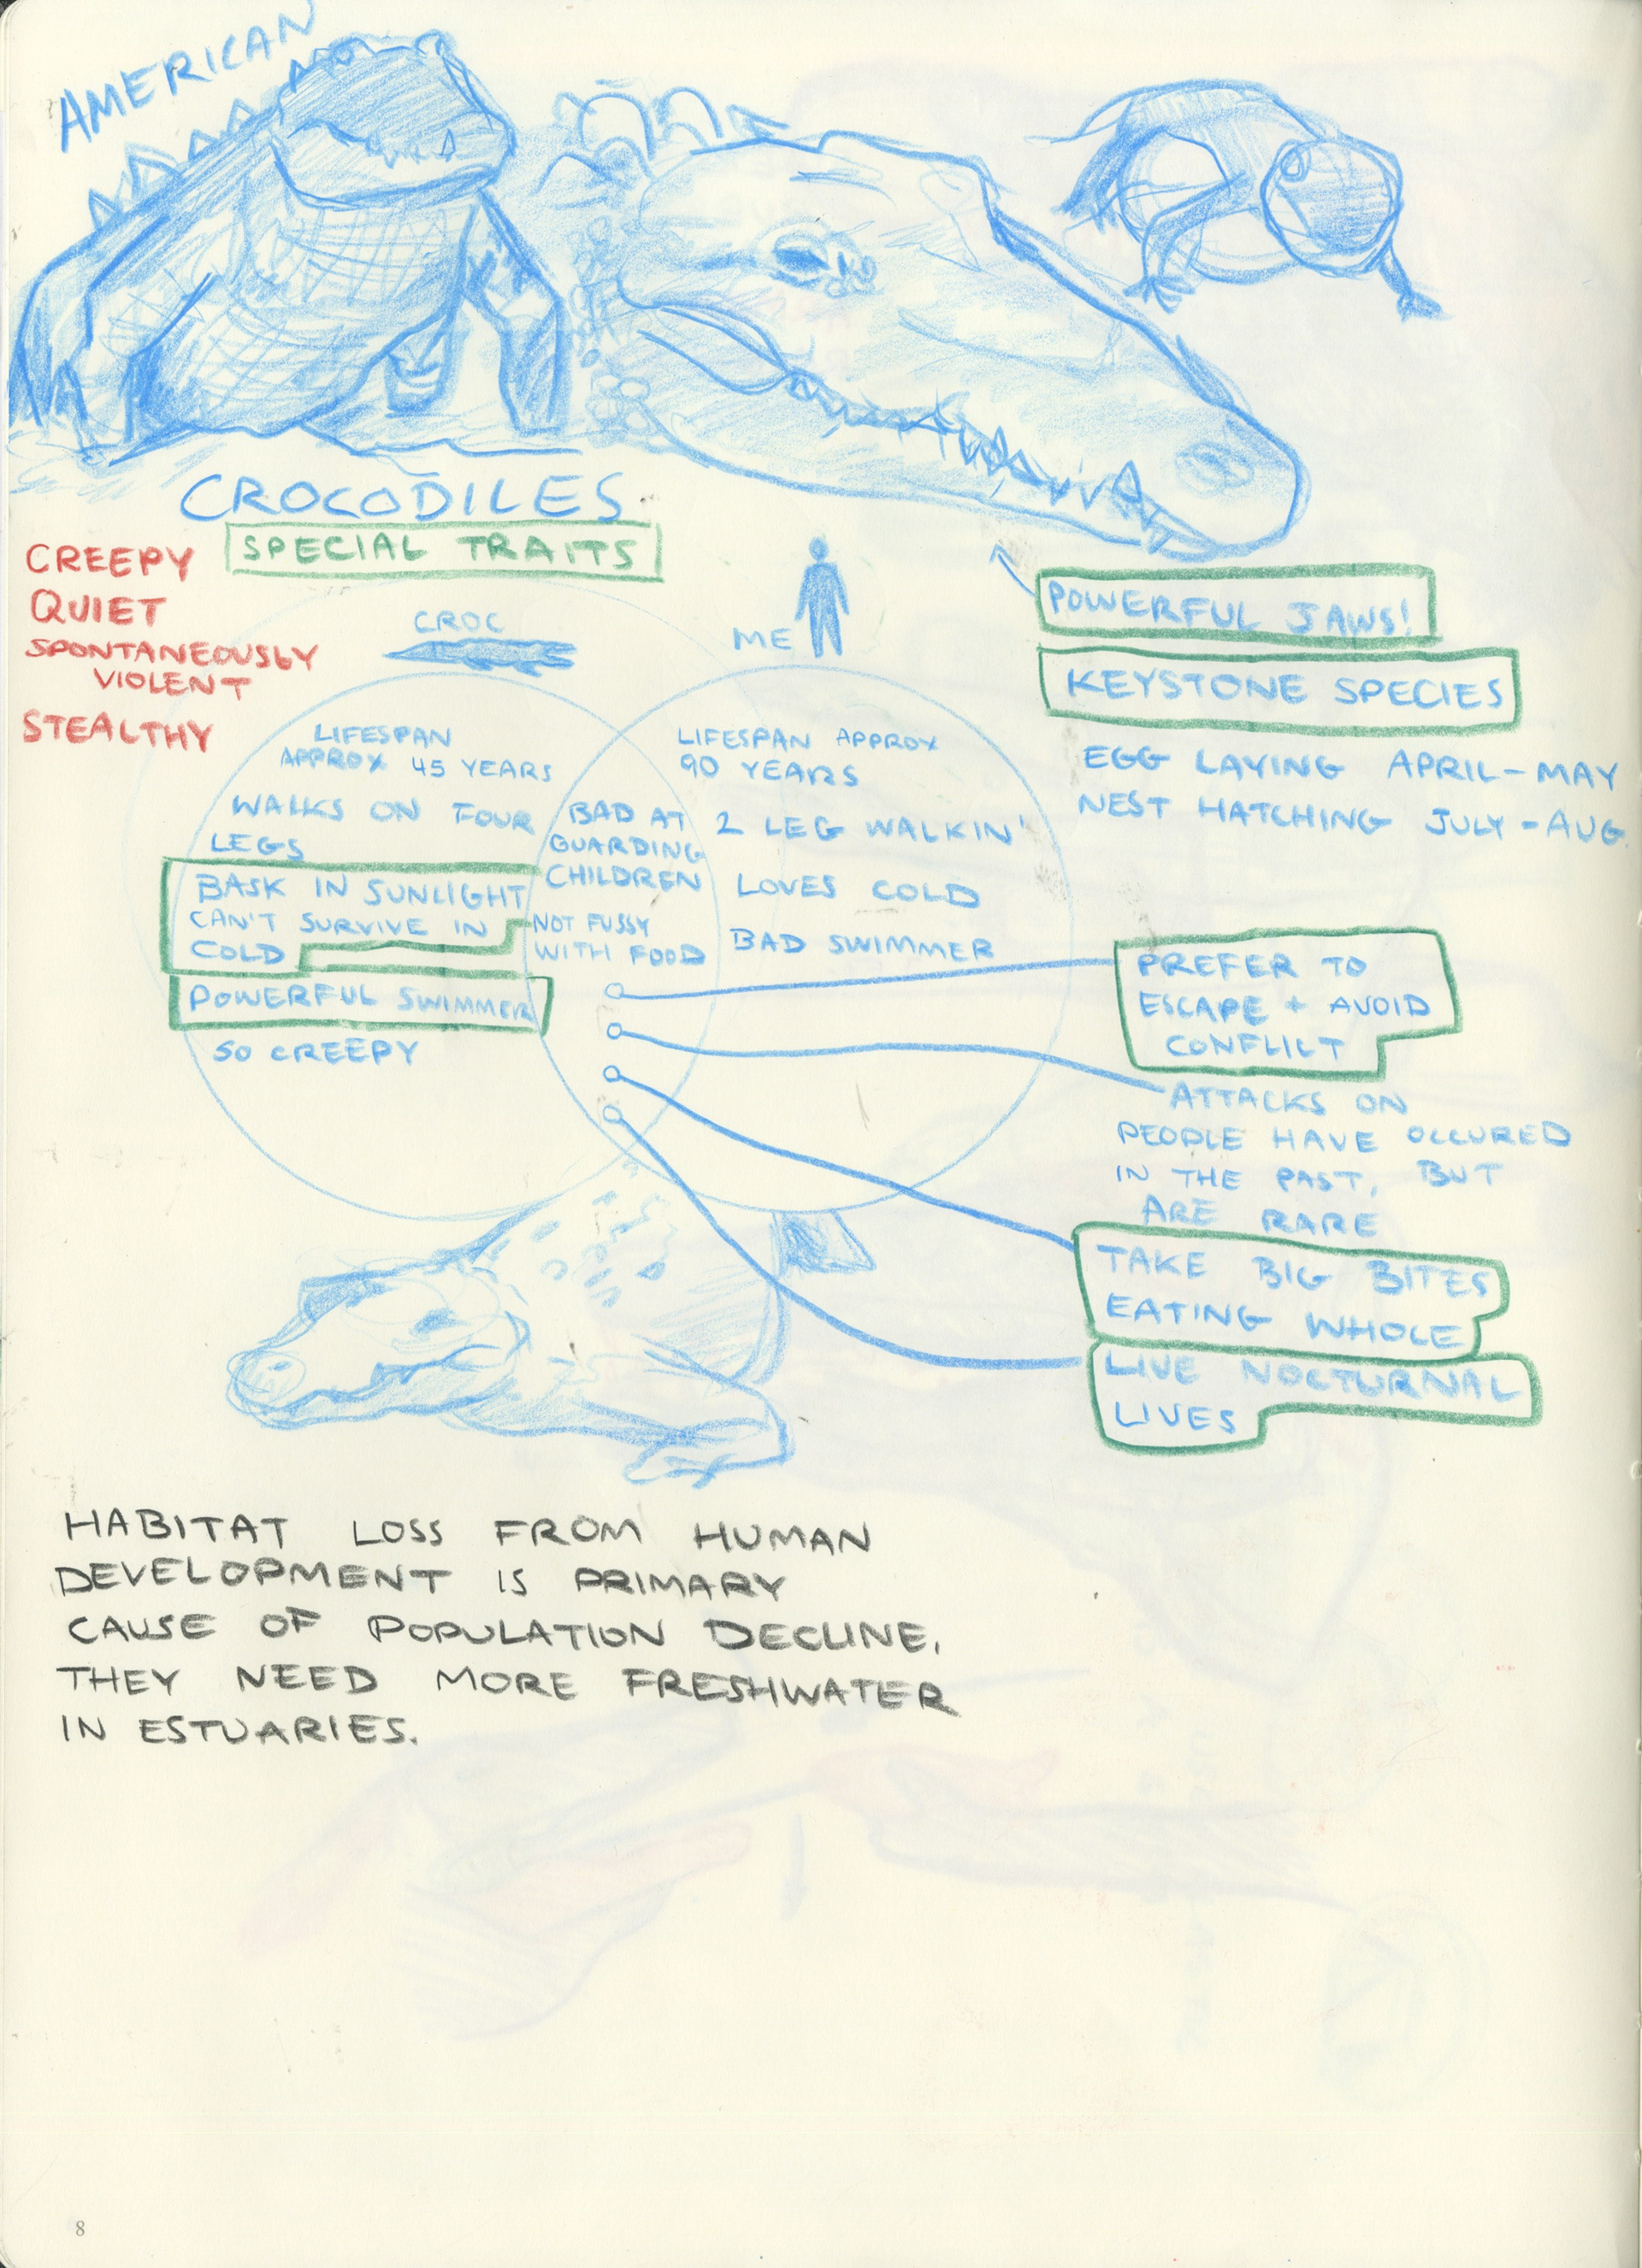 AMERICAN
CROCODILES
SPECIAL TRAITS
CREEPY
QUIET
SPONTANEOUSLY
VIOLENT
STEALTHY
CROC
ME
LIFESPAN
APPROX 45 YEARS
WALKS ON FOUR
LEGS
BASK IN SUNLIGHT
CAN'T SURVIVE IN
COLD
POWERFUL SWIMMER
SO CREEPY
BAD AT
GUARDING
CHILDREN
NOT FUSSY
WITH FOOD
LIFESPAN APPROX
90 YEARS
2 LEG WALKIN'
LOVES COLD
BAD SWIMMER
POWERFUL JAWS!
KEYSTONE SPECIES
EGG LAYING APRIL-MAY
NEST HATCHING JULY-AUG.
PREFER TO
ESCAPE + AVOID
CONFLICT
ATTACKS ON
PEOPLE HAVE OCCURED
IN THE PAST, BUT
ARE RARE
TAKE BIG BITES
EATING WHOLE
LIVE NOCTURNAL
LIVES
HABITAT LOSS FROM HUMAN
DEVELOPMENT IS PRIMARY
CAUSE OF POPULATION DECLINE,
THEY NEED MORE FRESHWATER
IN ESTUARIES.
8